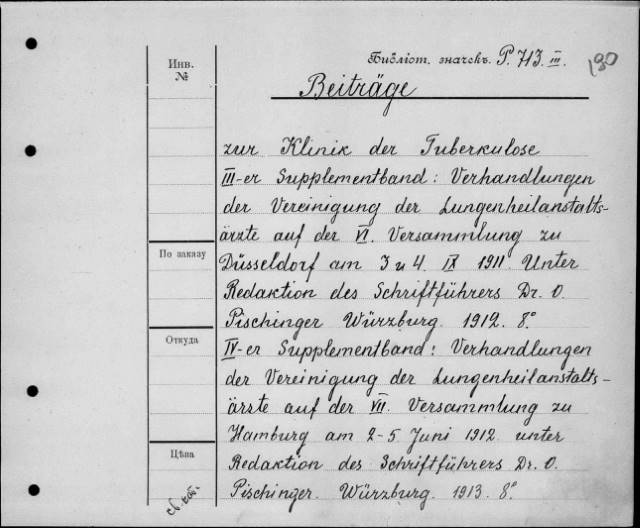 Инв.
№
Библіот. значекъ. P. 713. III.
130
Beiträge
zur Klinik der Tuberkulose
III-er Supplementband: Verhandlungen
der Vereinigung der Lungenheilanstalts-
ärzte auf der VI. Versammlung zu
По заказу
Düsseldorf am 3 u 4. IX 1911. Unter
Redaktion des Schriftführers Dr. O.
Pischinger Würzburg. 1912. 8°.
Откуда
IV-er Supplementband: Verhandlungen
der Vereinigung der Lungenheilanstalts-
ärzte auf der VII. Versammlung zu
Hamburg am 2-5 Juni 1912. unter
Цѣна
Redaktion des Schriftführers Dr. O.
Pischinger. Würzburg. 1913. 8°.